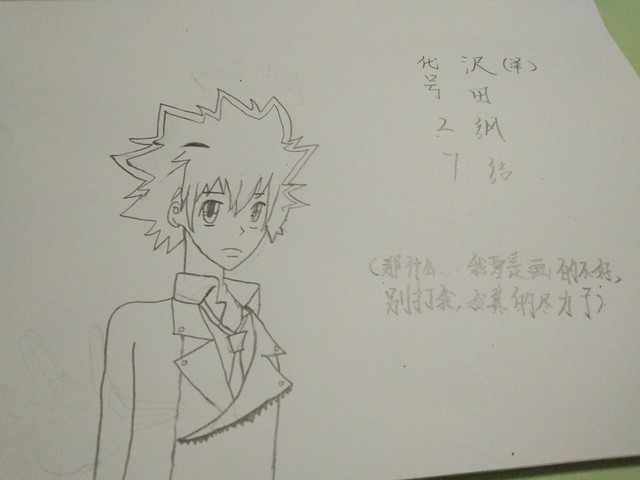 代号27
沢(泽)田纲结
(那什么... 我要是画的不好,
别打 ,我真的尽力了)